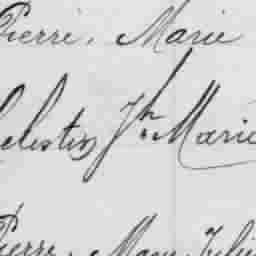 Pierre, Marie
Celestin Jh. Marie
Pierre, Marie Julie